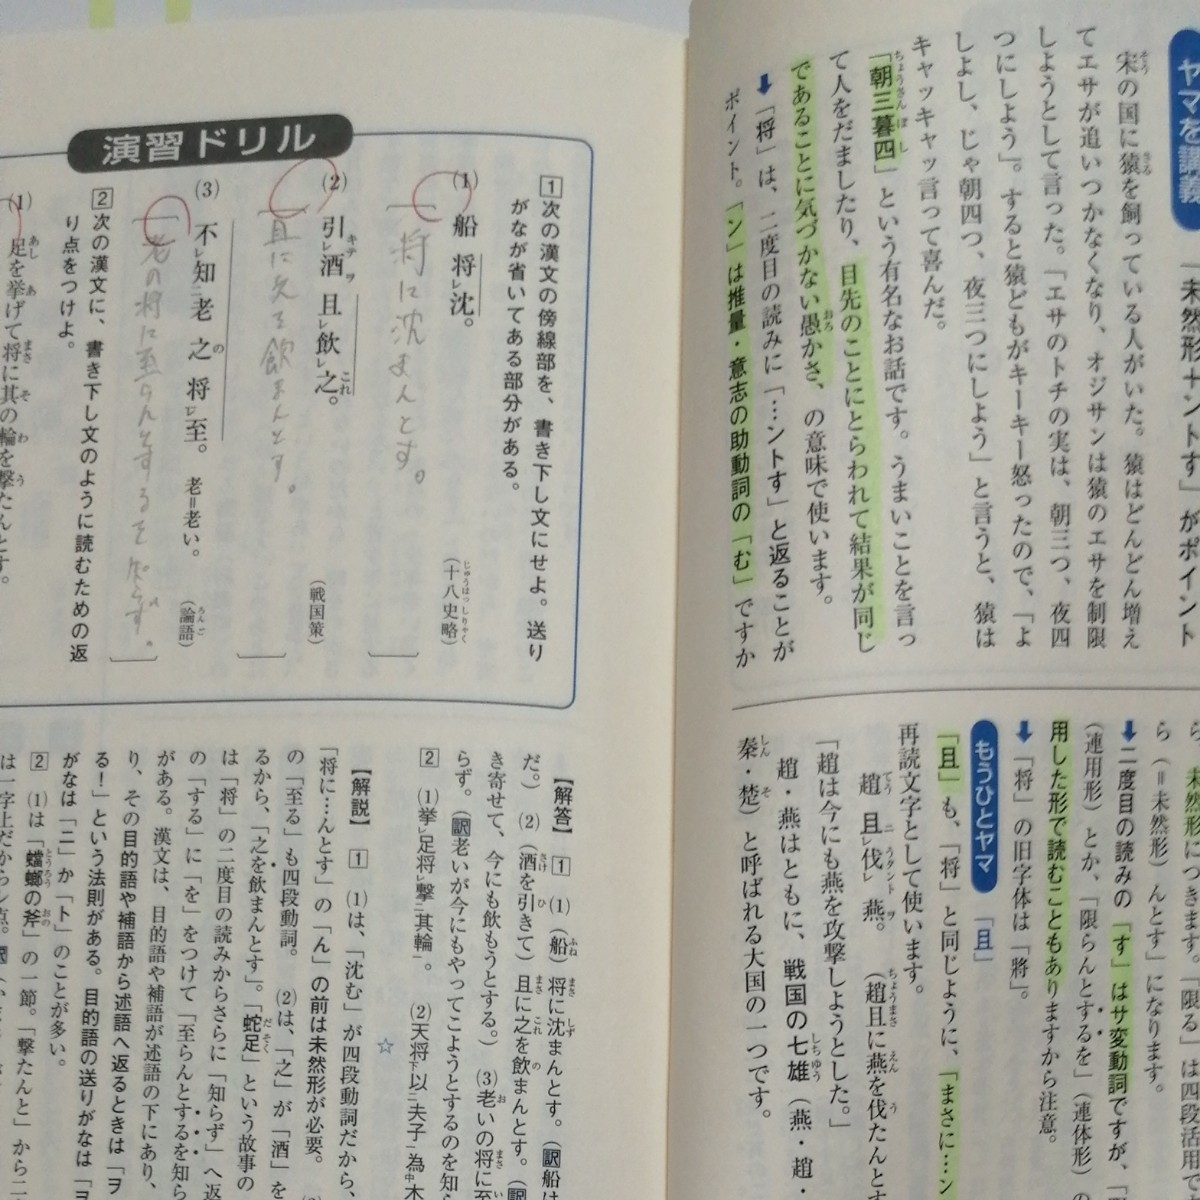 ヤマを講義
「未然形+ントす」がポイント
宋の国に猿を飼っている人がいた。猿はどんどん増え
てエサが追いつかなくなり、オジサンは猿のエサを制限
しようとして言った。「エサのトチの実は、朝三つ、夜四
つにしよう」。すると猿どもがキーキー怒ったので、「よ
しよし、じゃ朝四つ、夜三つにしよう」と言うと、猿は
キャッキャッ言って喜んだ。
「朝三暮四」という有名なお話です。うまいことを言っ
て人をだましたり、目先のことにとらわれて結果が同じ
であることに気づかない愚かさ、の意味で使います。
↓「将」は、二度目の読みに「…ントす」と返ることが
ポイント。「ン」は推量・意志の助動詞の「む」ですか
ら、未然形につきます。「限る」は四段活用で
ら(=未然形)んとす」になります。
↓二度目の読みの「す」はサ変動詞ですが、
(連用形)とか、「限らんとするを」(連体形)の
用した形で読むこともありますから注意。
↓「将」の旧字体は「將」。
もうひとヤマ 「且」
「且」も、「将」と同じように、「まさに…ン
再読文字として使います。
趙且ニレ伐ウタントレ燕ヲ。(趙且に燕を伐たんとす
「趙は今にも燕を攻撃しようとした。」
趙・燕はともに、戦国の七雄(燕・趙・
秦・楚)と呼ばれる大国の一つです。
演習ドリル
1 次の漢文の傍線部を、書き下し文にせよ。送り
がなが省いてある部分がある。
(1) 船将レ沈。(十八史略)
将に沈まんとす。
(2) 引キテレ酒ヲ且レ飲レ之。(戦国策)
且に之を飲まんとす。
(3) 不レ知二老之将レ至。 老=老い。(論語)
老の将に至らんとするを知らず。
2 次の漢文に、書き下し文のように読むための返
り点をつけよ。
(1) 足を挙げて将に其の輪を撃たんとす。
【解答】 1 (1)(船)将に沈まんとす。(訳船は
だ。) (2)(酒を引きて)且に之を飲まんとす。(訳
き寄せて、今にも飲もうとする。) (3)老いの将に至
らず。(訳老いが今にもやってこようとするのを知ら
2 (1)挙レ足将レ撃二其輪一。 (2)天将下以二夫子一為中木
☆
【解説】 1 (1)は、「沈む」が四段動詞だから、
「将に…んとす」の「ん」の前は未然形が必要。
の「至る」も四段動詞。 (2)は、「之」が「酒」を
るから、「之を飲まんとす」。「蛇足」という故事の
は「将」の二度目の読みからさらに「知らず」へ返
の「する」に「を」をつけて「至らんとするを知ら
がある。漢文は、目的語や補語が述語の下にあり、
り、その目的語や補語から述語へ返るときは「ヲ
る!」という法則がある。目的語の送りがなは「ヲ
がなは「ニ」か「ト」のことが多い。
2 (1)は「蟷螂の斧」の一節。「撃たんと」から二
は一字上だからレ点。